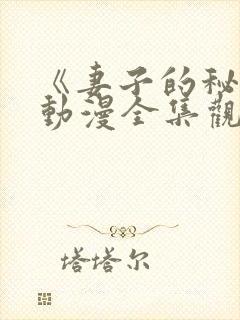 《妻子的秘
動漫全集觀
塔塔尔